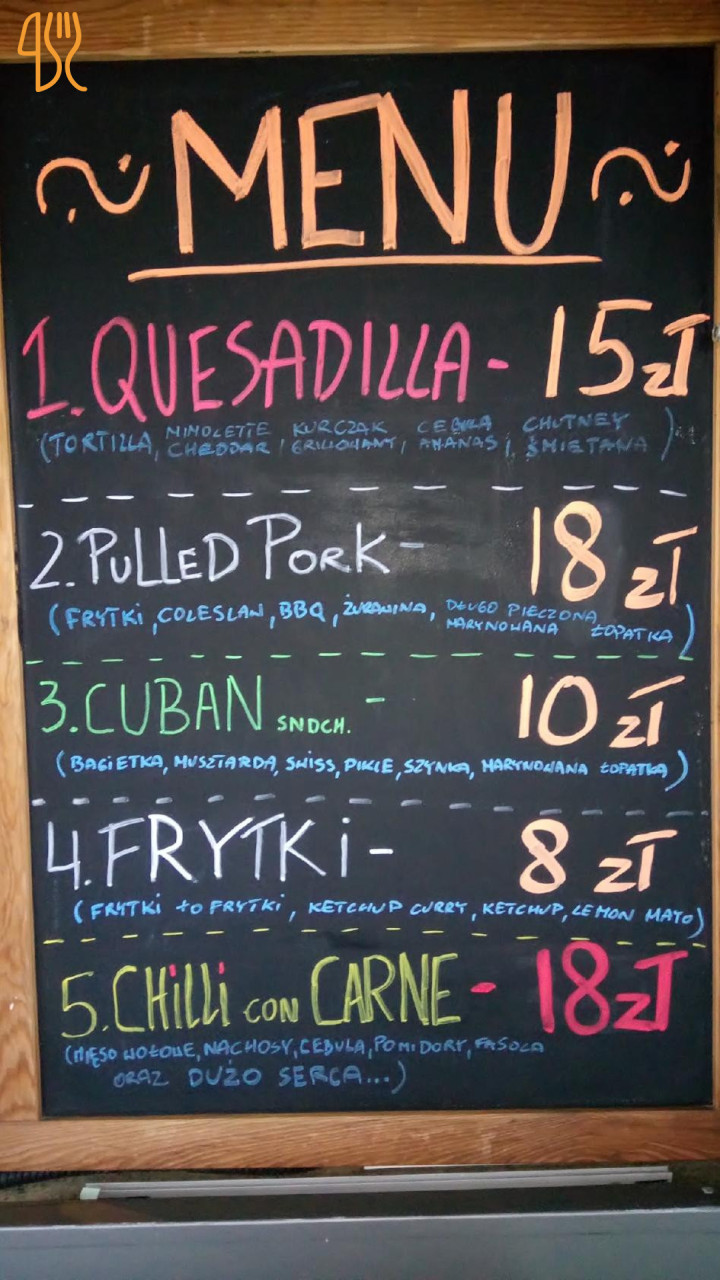 MENU
1. QUESADILLA - 15 zł
(TORTILLA, MIMOLETTE CHEDDAR, KURCZAK GRILLOWANY, CEBULA ANANAS, CHUTNEY ŚMIETANA)
2. PULLED PORK - 18 zł
(FRYTKI, COLESLAW, BBQ, ŻURAWINA, DŁUGO PIECZONA
MARYNOWANA ŁOPATKA)
3. CUBAN SNDCH. - 10 zł
(BAGIETKA, MUSZTARDA, SWISS, PIKLE, SZYNKA, MARYNOWANA ŁOPATKA)
4. FRYTKi - 8 zł
(FRYTKI to FRYTKI, KETCHUP CURRY, KETCHUP, LEMON MAYO)
5. CHiLLi CON CARNE - 18 zł
(MIĘSO WOŁOWE, NACHOSY, CEBULA, POMIDORY, FASOLA
ORAZ DUŻO SERCA...)